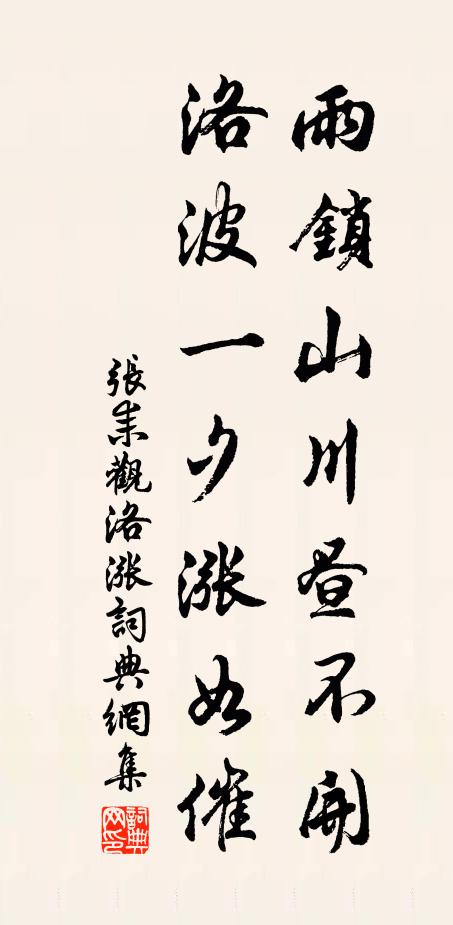 雨鎖山川晝不開
洛波一夕漲如催
張耒觀洛漲詞典網集
詞典網印